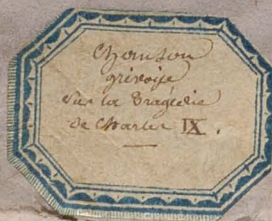 Chanson
grivoise
sur la Tragédie
de Charles IX.